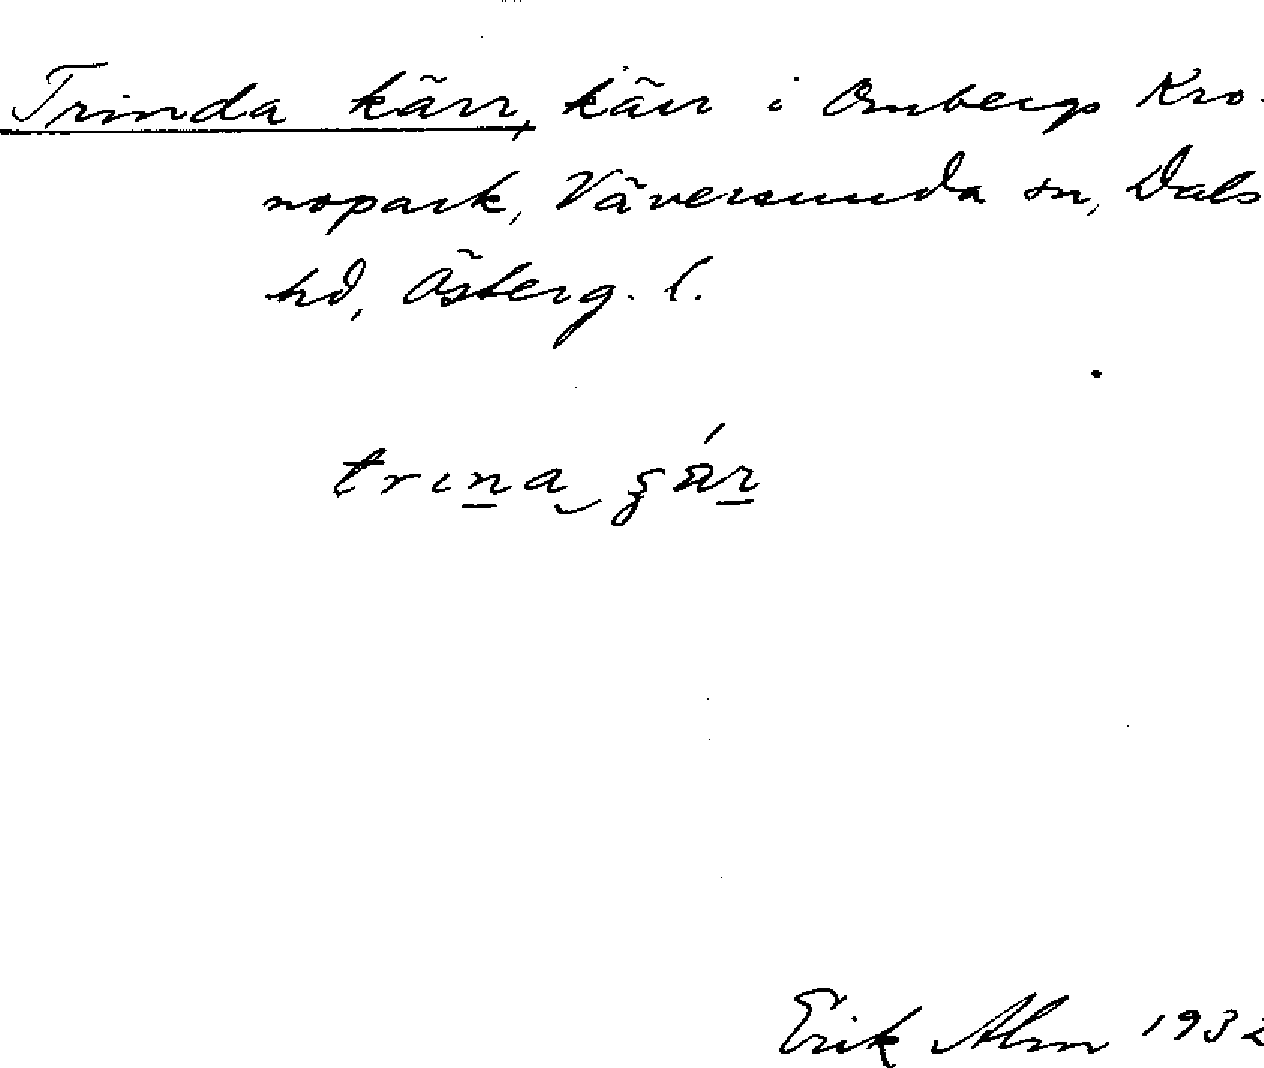 Trinda kärr, kärr i Ombergs Kro-
nopark, Väversunda sn, Dals
hd, Österg. l.
Erik Alm 1932